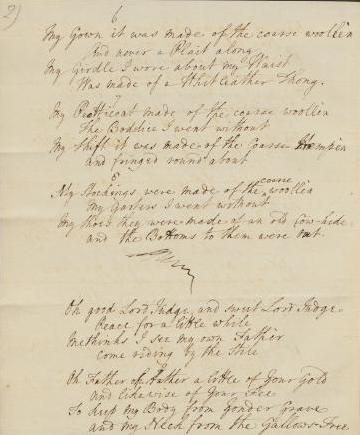 2)
6
My Gown it was made of the coarse woollen
And never a Plait along
My Girdle I wore about my Waist
Was made of a Whitleather Thong.
7
My Petticoat made of the coarse woollen
The Boddice I went without
My Shift it was made of the Coarse Hempen
and fringed round about
8
My Stockings were made of the coarse woollen
My Garters I went without
My Shoes they were made of an old Cow-hide
and the Bottoms to them were out
Oh good Lord Judge, and sweet Lord Judge
Peace for a little while
methinks I see my own Father
come riding by the Stile
Oh Father Father a little of Your Gold
and likewise of Your Fee
To keep my Body from yonder Grave
and my Neck from the Gallows-Tree